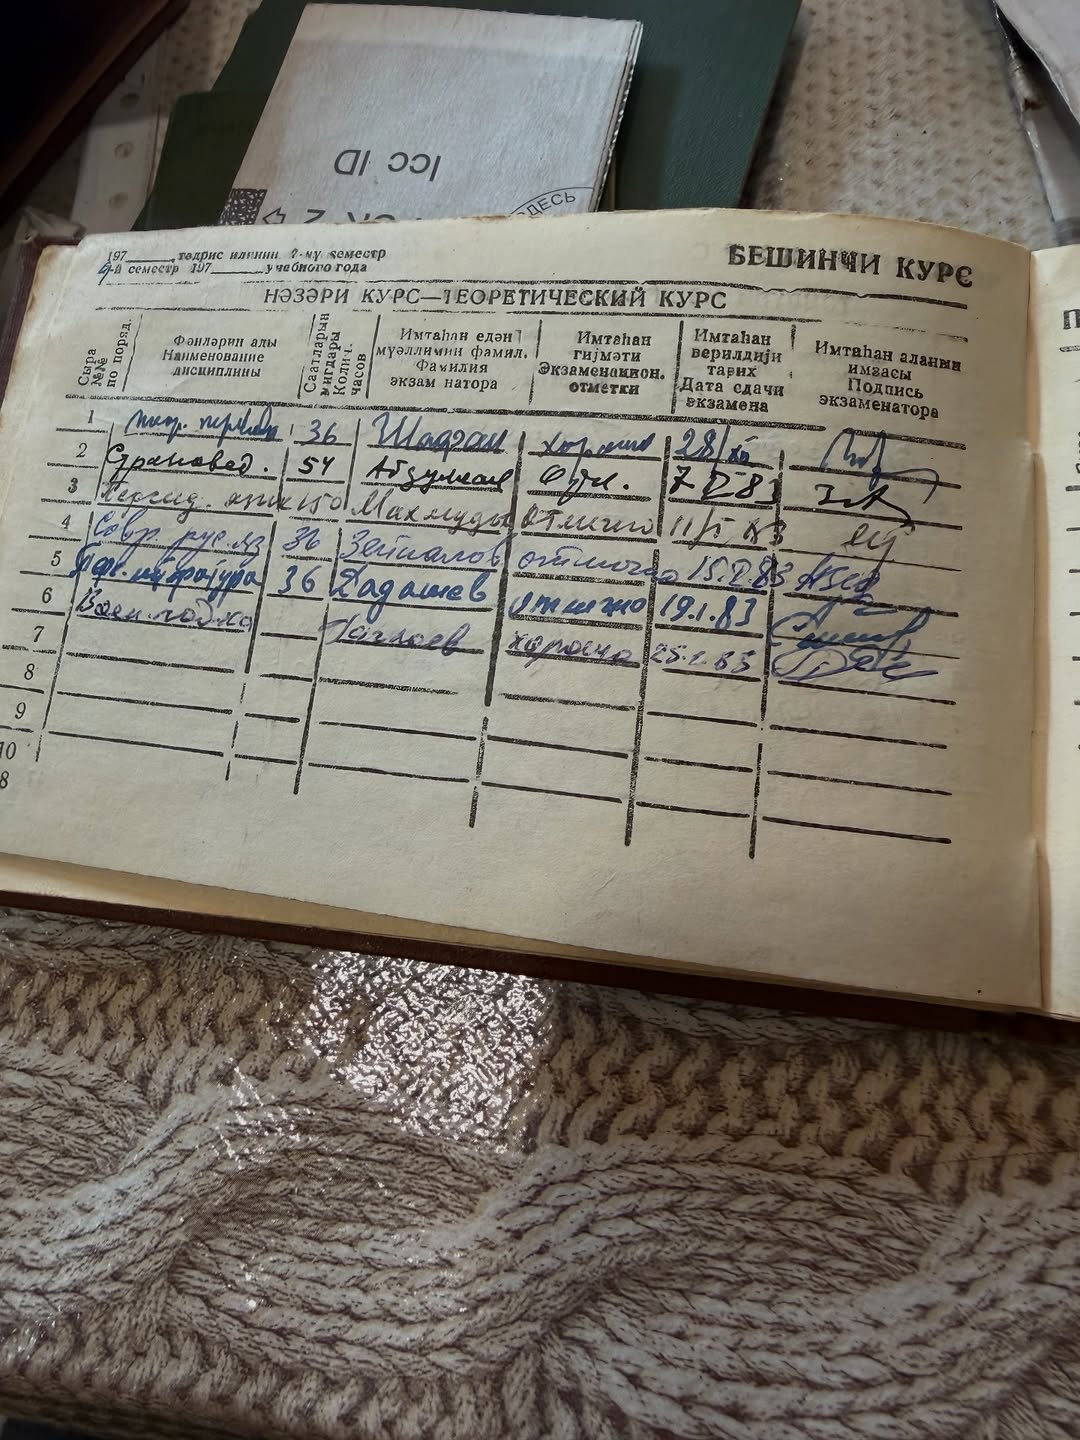 Icc ID
ЗДЕСЬ
197____ тәдрис илинин 9-чу семестр
9-й семестр 197____ учебного года
БЕШИНЧИ КУРС
НӘЗӘРИ КУРС—ТЕОРЕТИЧЕСКИЙ КУРС
Сыра №№ по поряд.
Фәнләрин адны
Наименование дисциплины
Саатларын
Колич. часов
Имтаһан едән мүәллимин фамил.
Фамилия экзаменатора
Имтаһан гијмәти
Экзаменацион. отметки
Имтаһан верилдији тарих
Дата сдачи экзамена
Имтаһан аланын имзасы
Подпись экзаменатора
1 36 хорошо 28/XII
2 Страновед. 54 Абдуллаев Отл. 7/I 83
3 Персид. язык 150 Махмудов отлично 11/I 83
4 Совр. рус. яз 36 Зейналов отлично 15.I.83
5 литература 36 Дадашев отлично 19.1.83
6 Воен. подг. хорошо 25.1.83
7
8
9
10